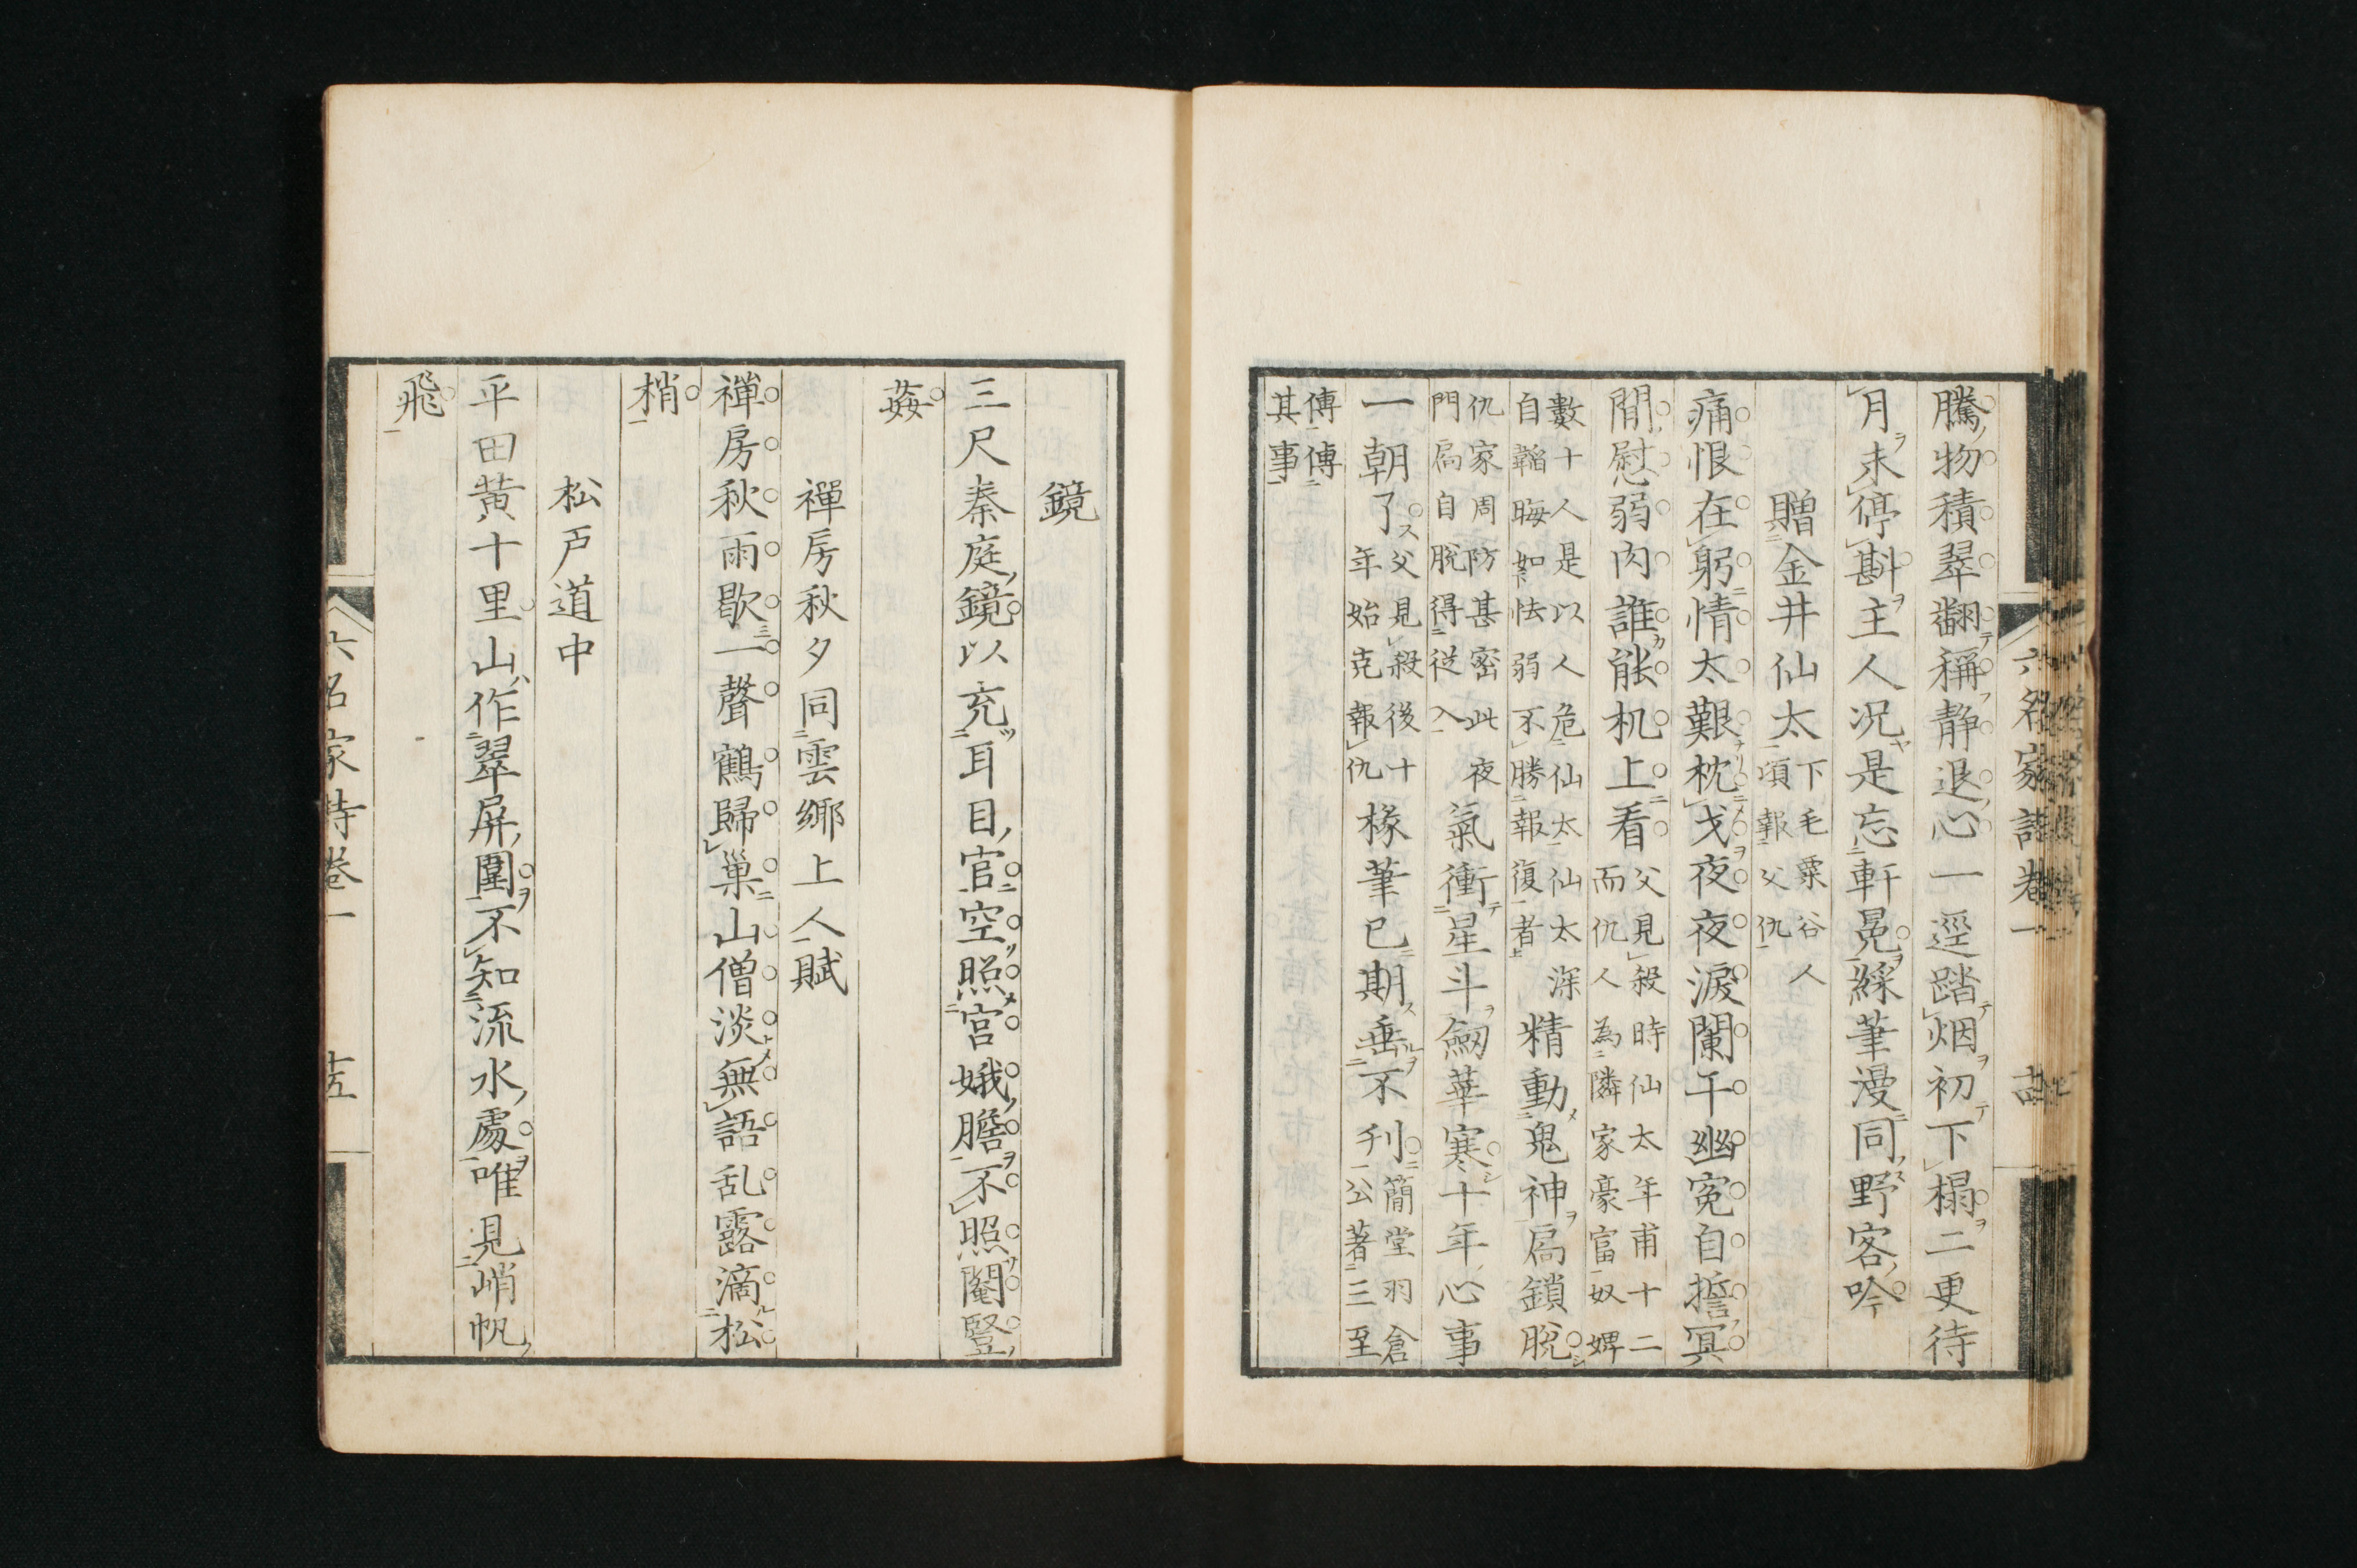 騰物積翠翻稱靜退心一逕踏烟初下榻二更待
月未停斟主人况是忘軒冕綵筆漫同野客吟
贈金井仙太下毛粟谷人
頃報父仇
痛恨在躬情太艱枕戈夜夜淚闌干幽寃自誓冥
間慰弱肉誰能机上看父見殺時仙太年甫十二
而仇人為隣家豪富奴婢
數十人是以人危仙太仙太深
自韜晦如怯弱不勝報復者
精動鬼神扃鎖脫
仇家周防甚密此夜
門扃自脫得從入
氣衝星斗劒華寒十年心事
一朝了父見殺後十
年始克報仇
椽筆已期垂不刋簡堂羽倉
公著三至
傳傳
其事
六名家詩卷一
鏡
三尺秦庭鏡以充耳目官空照宮娥膽不照閹豎
姦
禪房秋夕同雲鄉上人賦
禪房秋雨歇一聲鶴歸巢山僧淡無語乱露滴松
梢
松戶道中
平田黄十里山作翠屏圍不知流水處唯見峭帆
飛
六名家詩卷一 十五